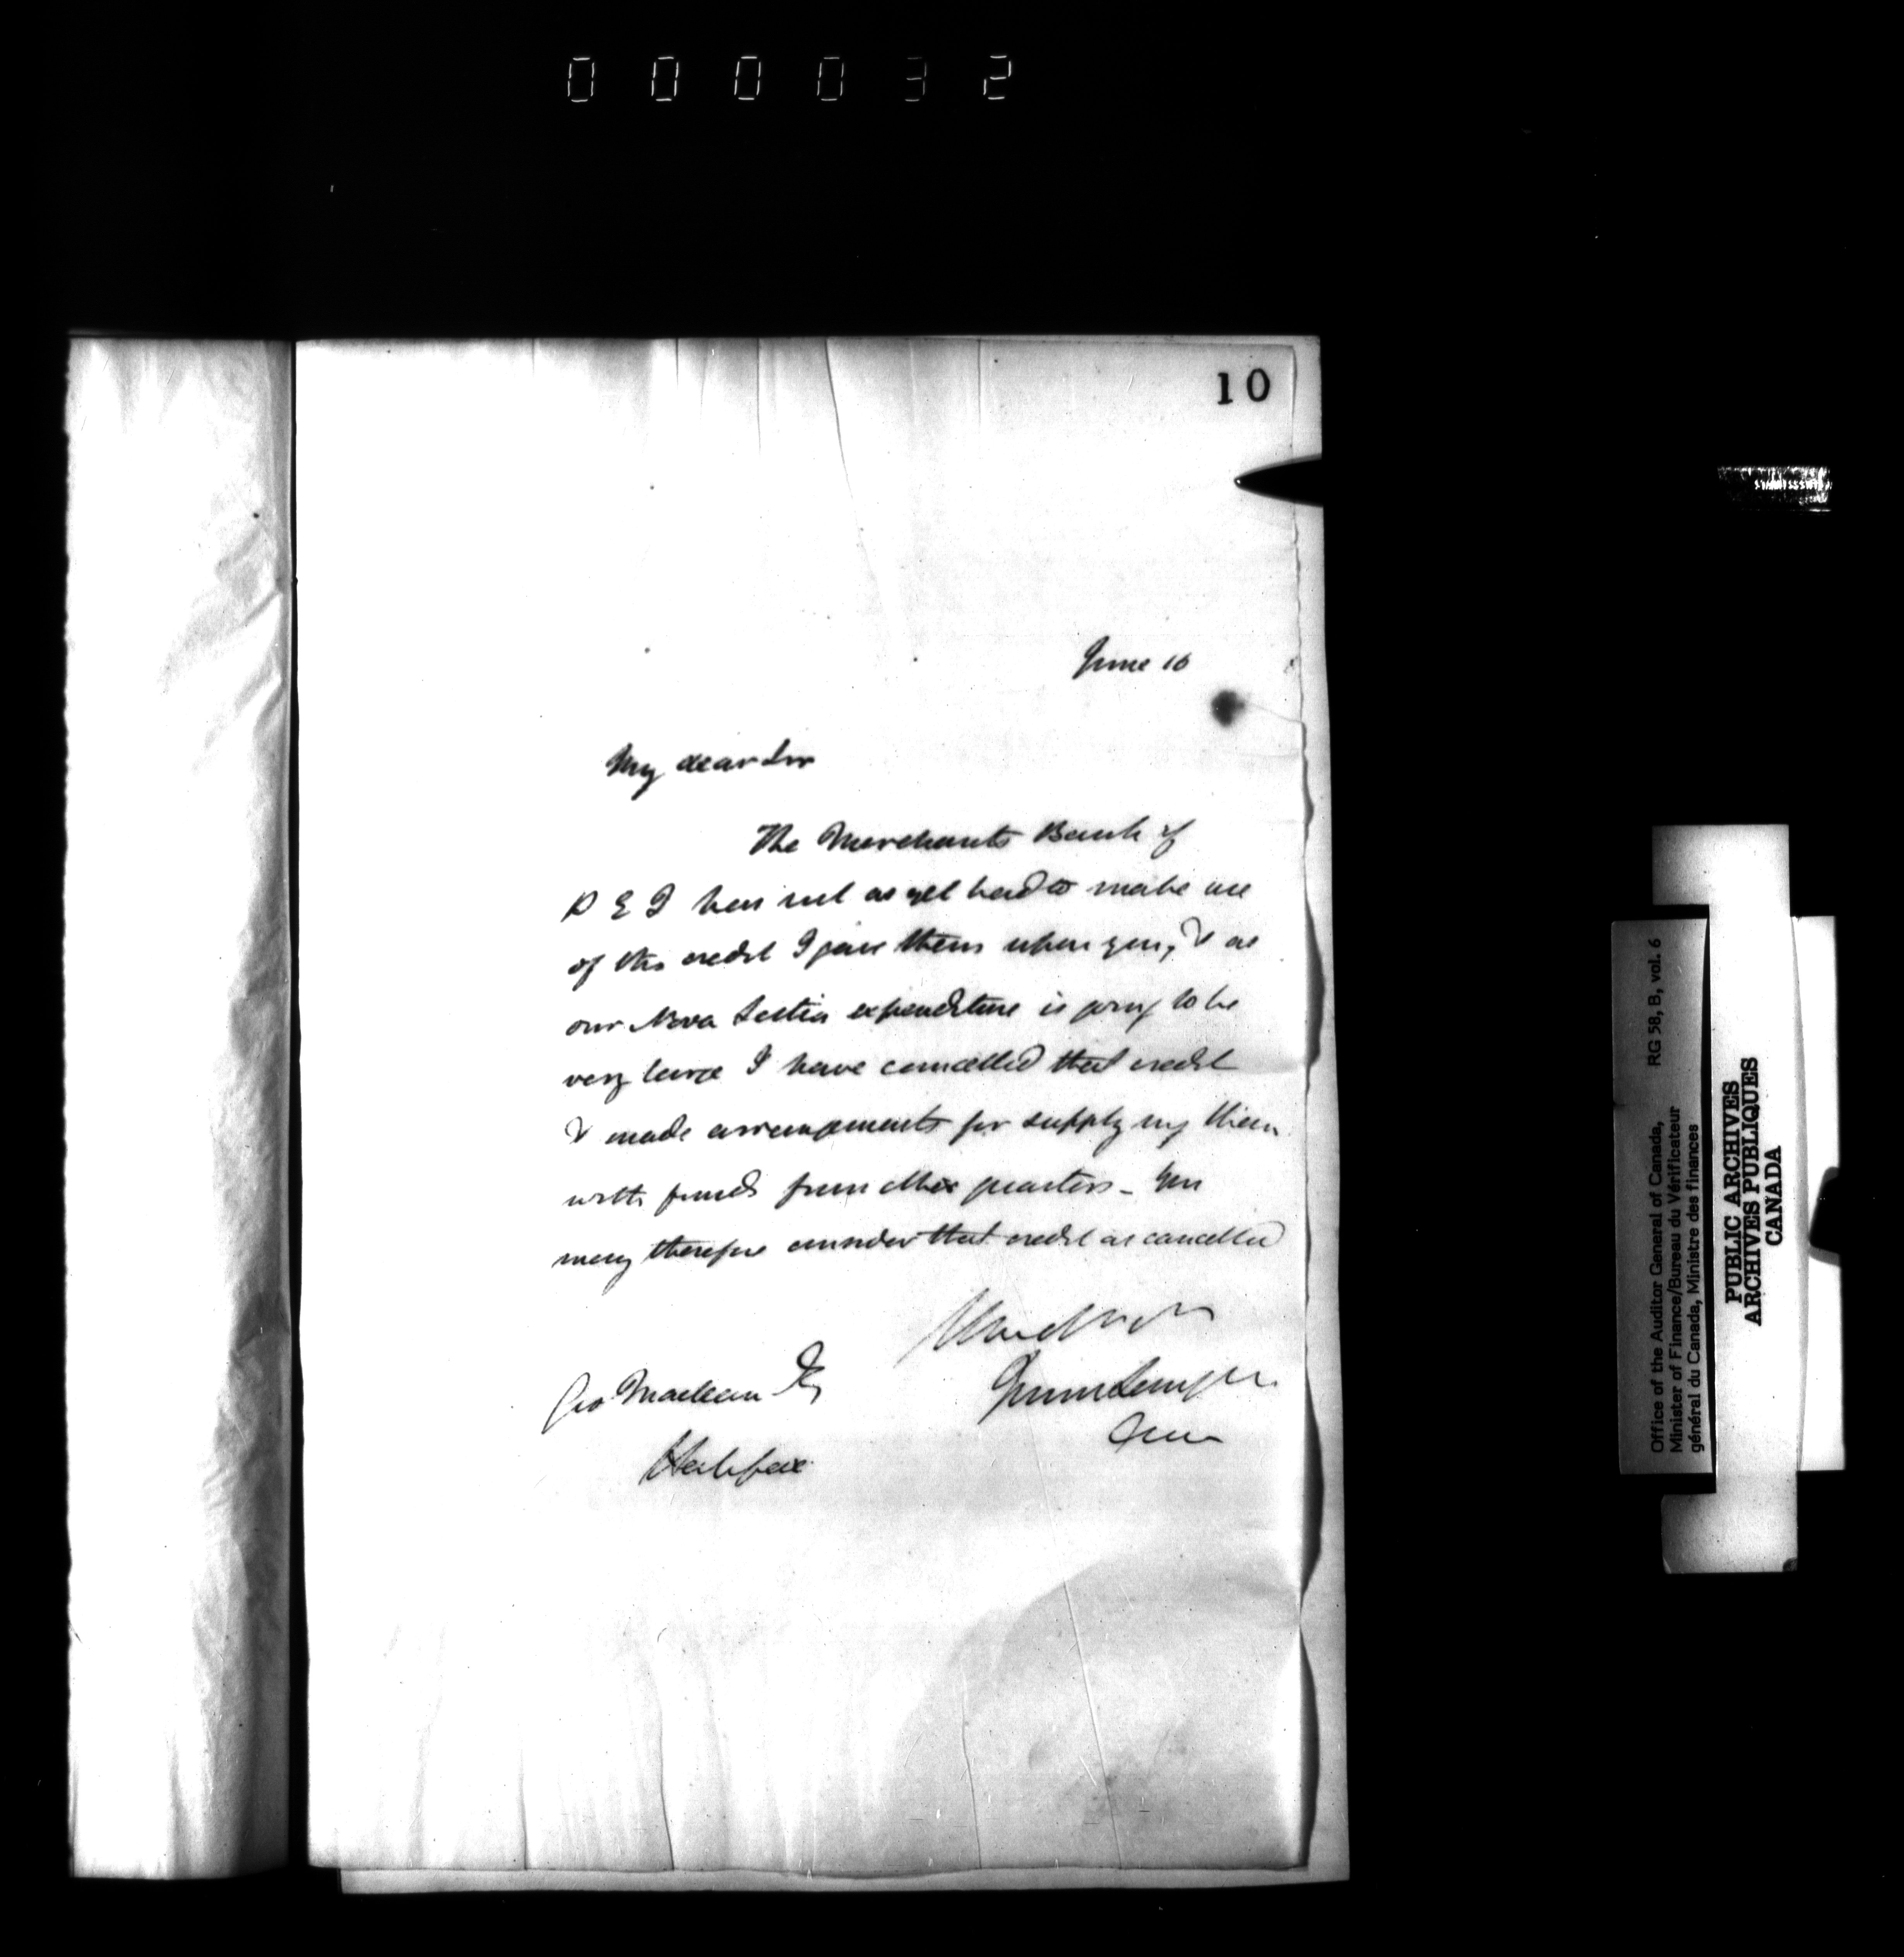 000032
10
June 16
My dear Sir
The Merchants Bank of
P E I has not as yet had to make use
of the credit I gave them upon you, & as
our Nova Scotia expenditure is going to be
very large I have cancelled that credit
& made arrangements for supplying them
with funds from other quarters - You
may therefore consider that credit as cancelled
Geo Maclean Esq
Halifax
Office of the Auditor General of Canada, RG 58, B, vol. 6
Minister of Finance/Bureau du Vérificateur
général du Canada, Ministre des finances
PUBLIC ARCHIVES
ARCHIVES PUBLIQUES
CANADA